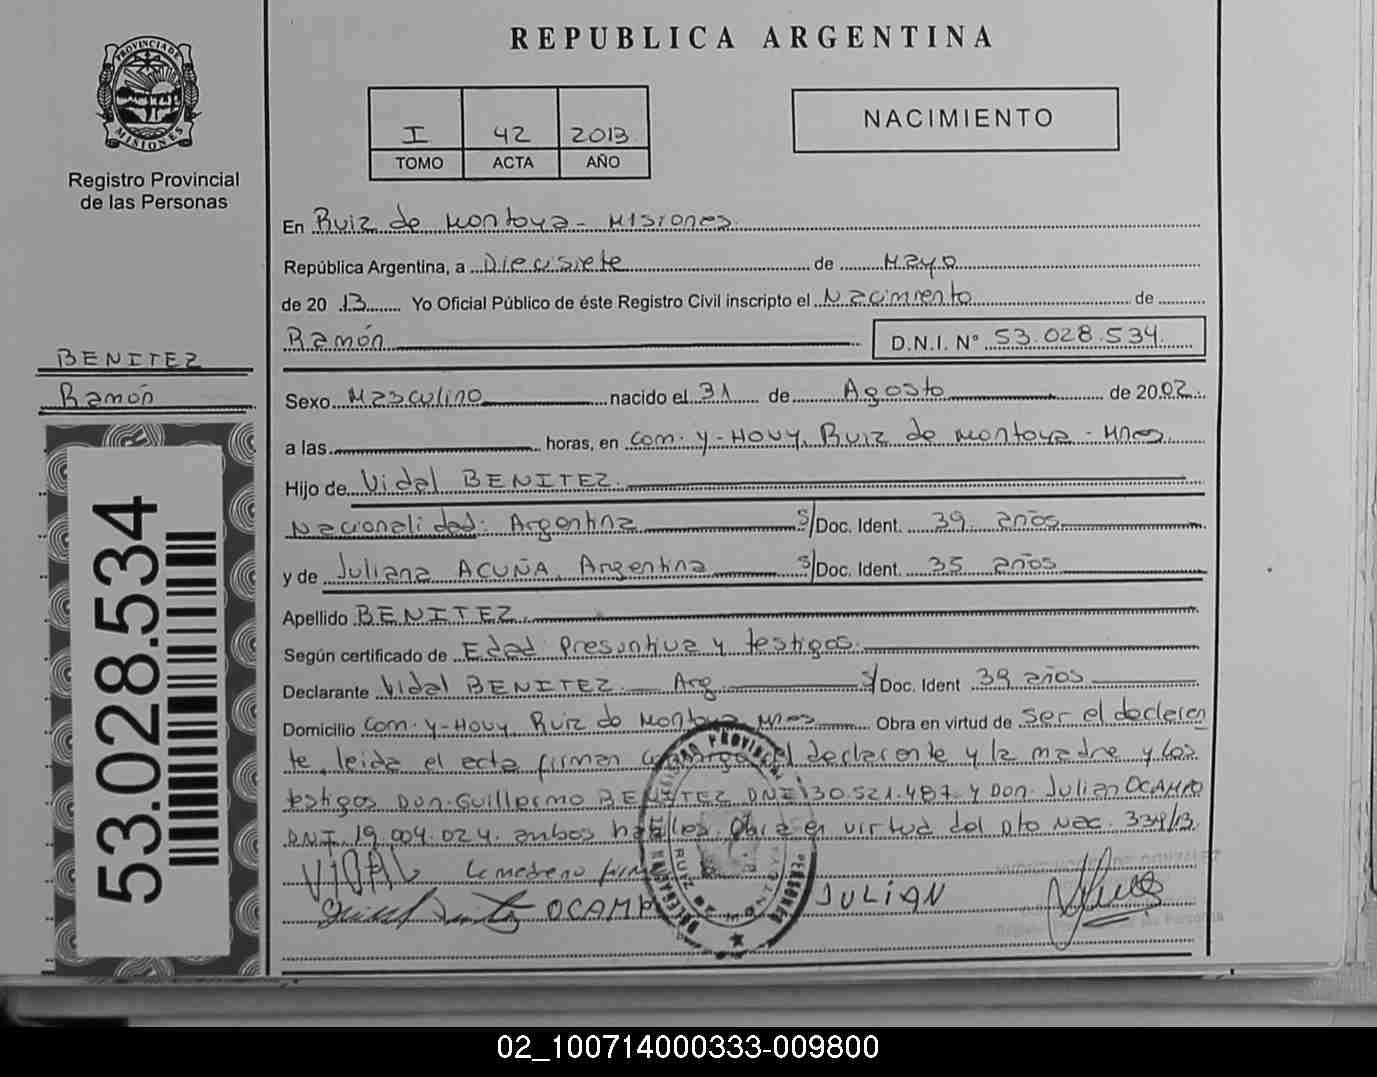 REPUBLICA ARGENTINA
PROVINCIA DE
MISIONES
Registro Provincial
de las Personas
I 42 2013
TOMO ACTA AÑO
NACIMIENTO
En Ruiz de Montoya - Misiones
República Argentina, a Diecisiete de Mayo
de 20 13 Yo Oficial Público de éste Registro Civil inscripto el Nacimiento de
Ramón D.N.I. N° 53.028.534
BENITEZ
Ramón
Sexo Masculino nacido el 31 de Agosto de 2002
a las horas, en Com. Y-Hovy, Ruiz de Montoya - Mnes
Hijo de Vidal BENITEZ.
Nacionalidad: Argentina S/ Doc. Ident. 39 años
y de Juliana ACUÑA, Argentina S/ Doc. Ident. 35 años
Apellido BENITEZ
Según certificado de Edad Presuntiva y testigos.
Declarante Vidal BENITEZ. Arg. S/ Doc. Ident 39 años
Domicilio Com. Y-Hovy, Ruiz de Montoya Mnes Obra en virtud de ser el declaren
te, leida el acta firman el declarante y la madre y los
testigos Don. Guillermo BENITEZ DNI 30.521.487 y Don. Julian OCAMPO
DNI 19.004.024. ambos habiles. Obra en virtud del Dto Nac. 339/13.
VIDAL
OCAMP JULIAN
53.028.534
02_100714000333-009800